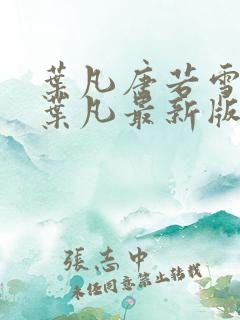 葉凡唐若雪
葉凡最新版
張志中
未经同意禁止转载